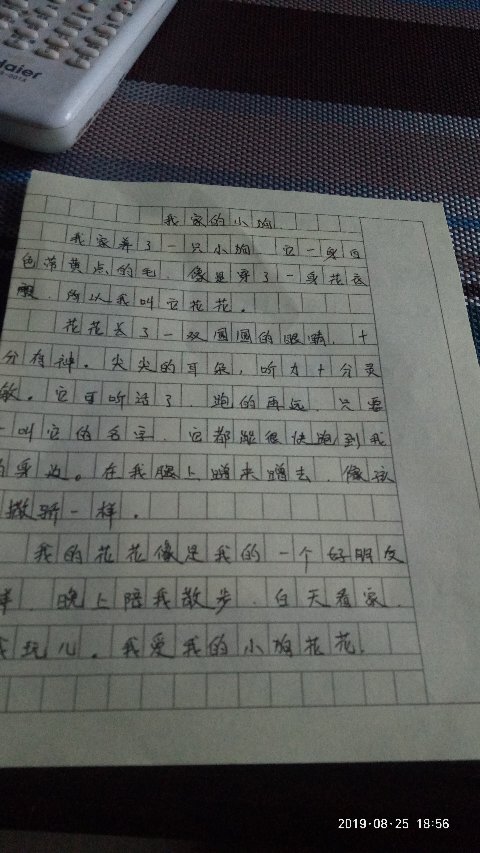 Haier
我家的小狗
我家养了一只小狗 它一身白
色带黄点的毛,像是穿了一身花衣
服,所以我叫它花花。
花花长了一双圆圆的眼睛,十
分有神。尖尖的耳朵,听力十分灵
敏。它可听话了,跑的再远,只要
一叫它的名字,它都能很快跑到我
的身边。在我腿上蹭来蹭去,像孩
撒娇一样。
我的花花像是我的一个好朋友
样,晚上陪我散步,白天看家,
我玩儿。我爱我的小狗花花!
2019-08-25 18:56